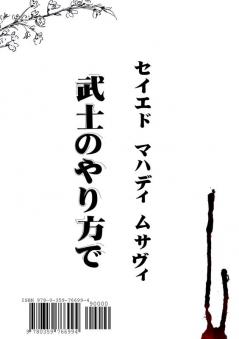 セイエド マハディ ムサヴィ
武士のやり方で
ISBN 978-0-359-76699-4
90000
9 780359 766994